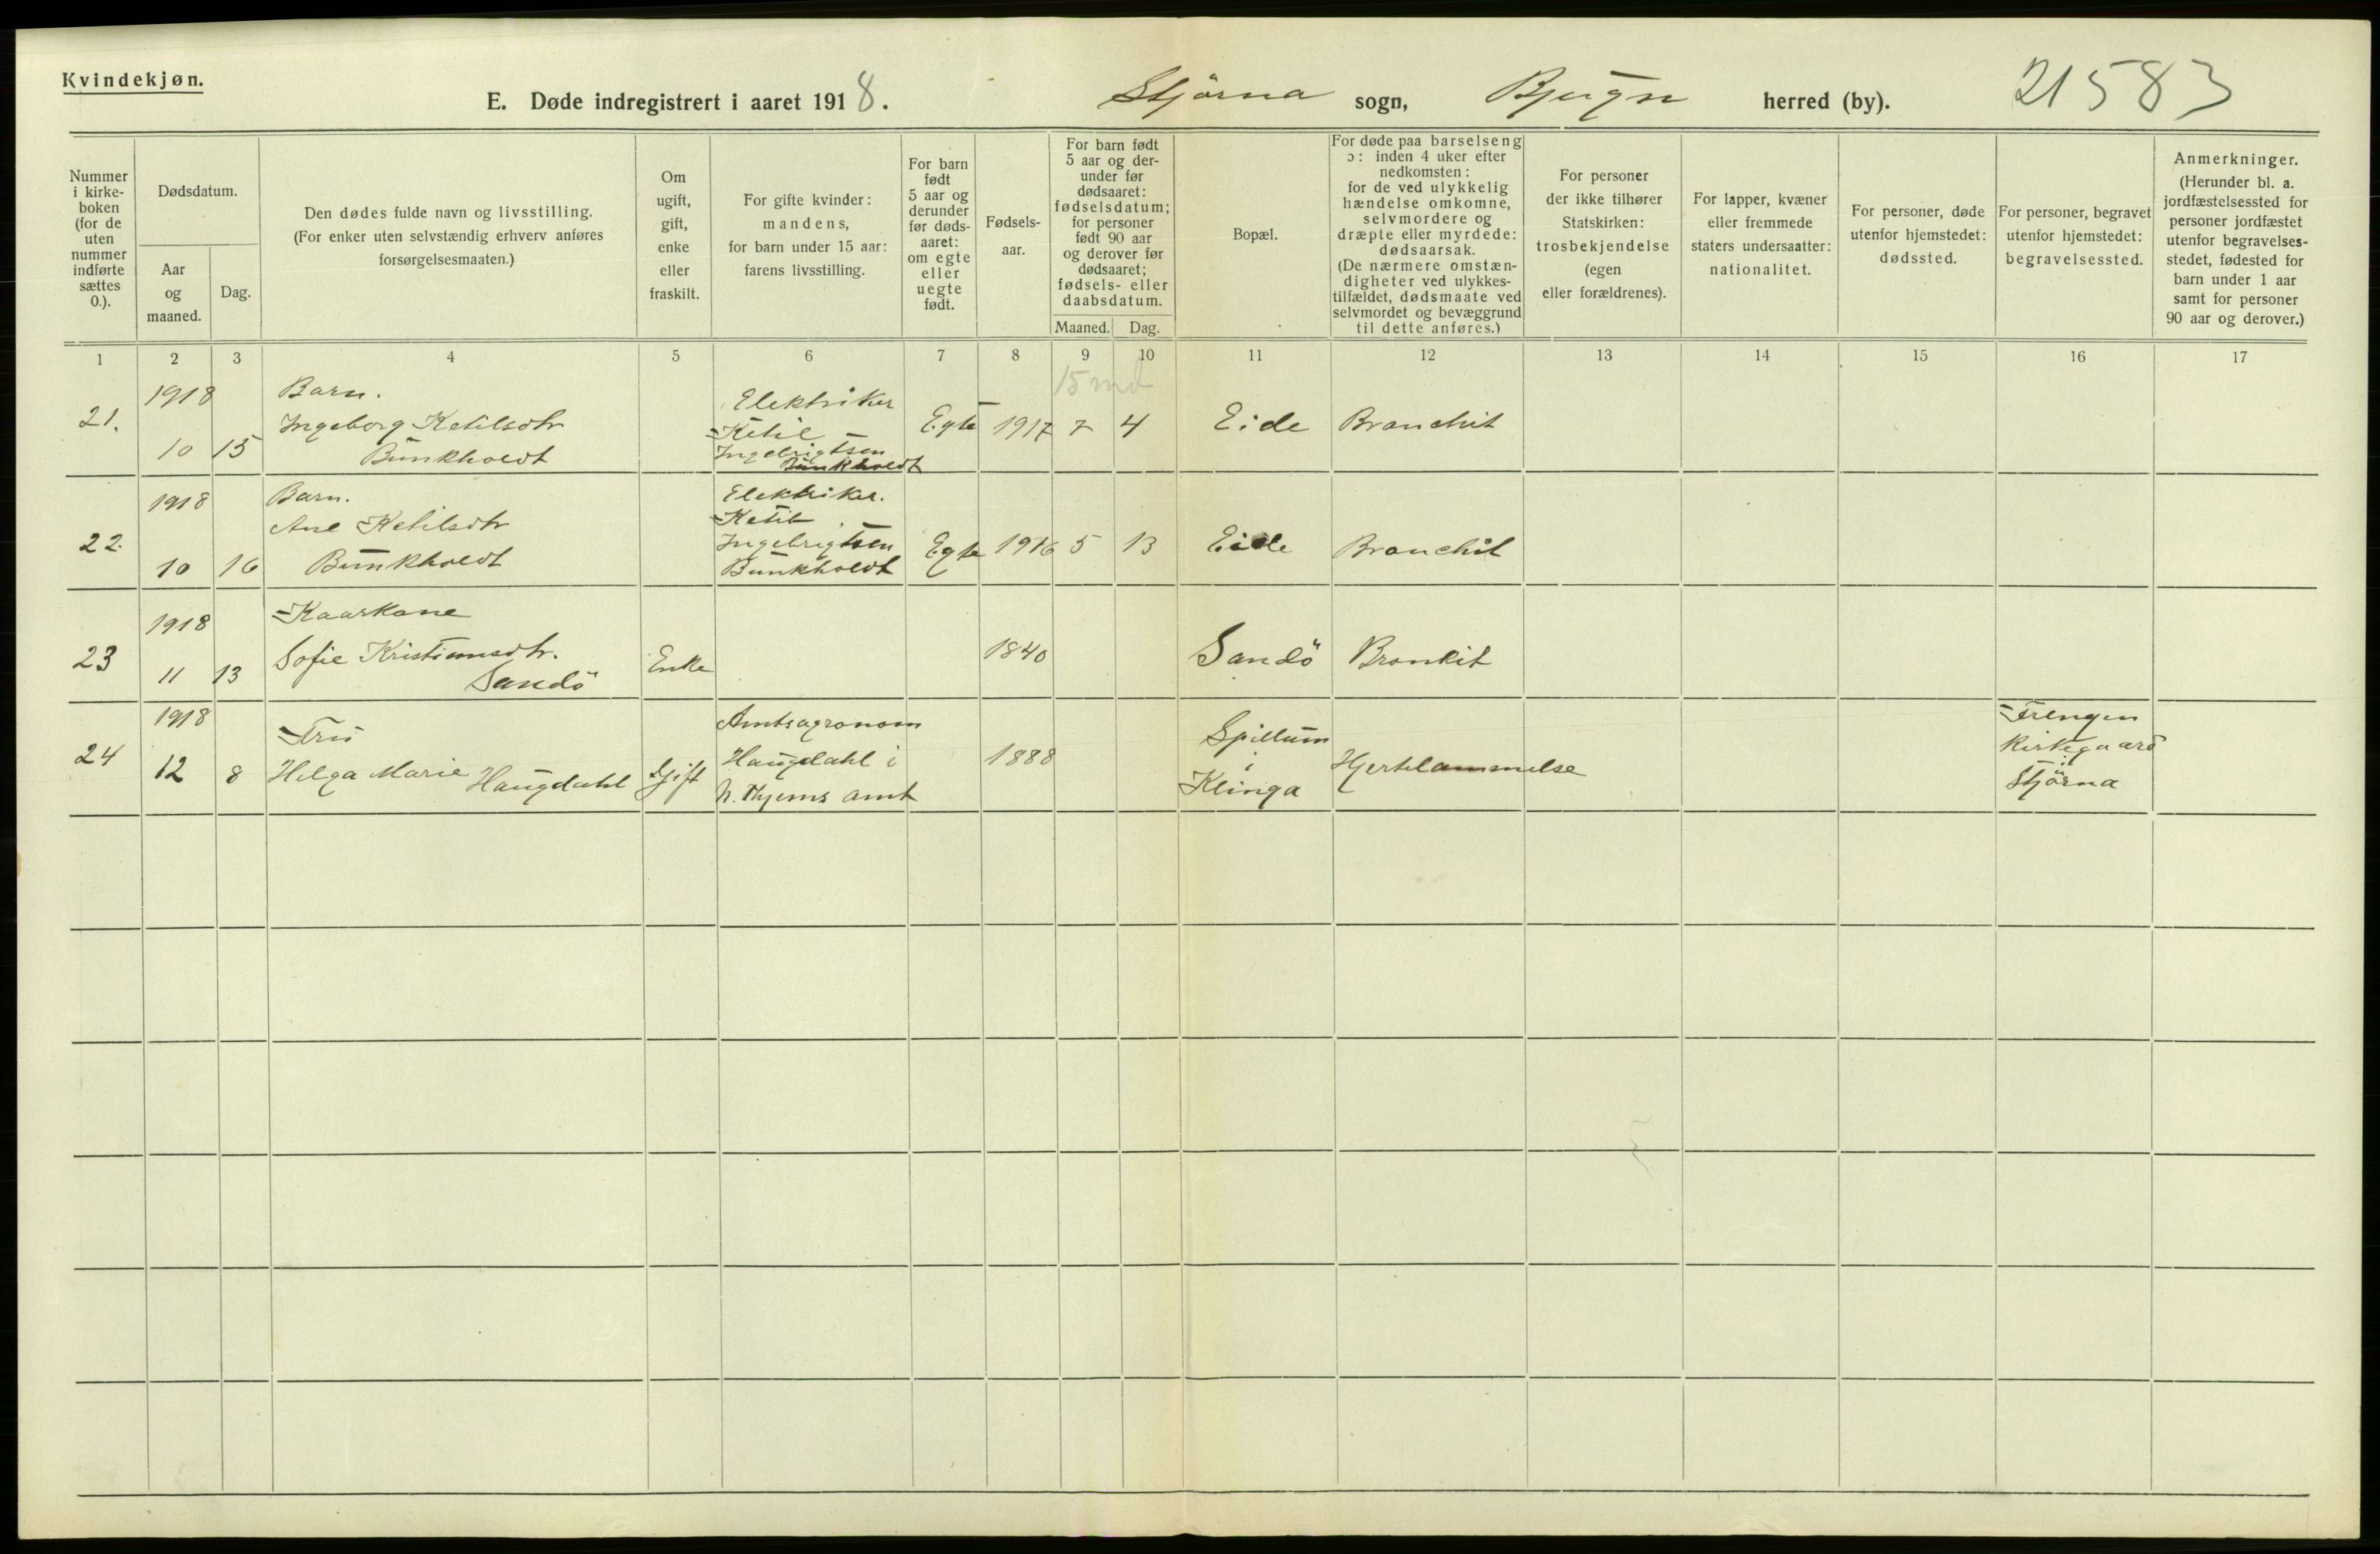 Kvindekjøn.
E. Døde indregistrert i aaret 1918.
Stjörna sogn, Bjugn herred (by).
21583
Nummer
i kirke-
boken
(for de
uten
nummer
indførte
sættes
0.).
Dødsdatum.
Aar
og
maaned.
Dag.
Den dødes fulde navn og livsstilling.
(For enker uten selvstændig erhverv anføres
forsørgelsesmaaten.)
Om
ugift,
gift,
enke
eller
fraskilt.
For gifte kvinder:
mandens,
for barn under 15 aar:
farens livsstilling.
For barn
født
5 aar og
derunder
før døds-
aaret:
om egte
eller
uegte
født.
Fødsels-
aar.
For barn født
5 aar og der-
under før
dødsaaret:
fødselsdatum;
for personer
født 90 aar
og derover før
dødsaaret;
fødsels- eller
daabsdatum.
Maaned. Dag.
Bopæl.
For døde paa barselseng
ɔ: inden 4 uker efter
nedkomsten:
for de ved ulykkelig
hændelse omkomne,
selvmordere og
dræpte eller myrdede:
dødsaarsak.
(De nærmere omstæn-
digheter ved ulykkes-
tilfældet, dødsmaate ved
selvmordet og bevæggrund
til dette anføres.)
For personer
der ikke tilhører
Statskirken:
trosbekjendelse
(egen
eller forældrenes).
For lapper, kvæner
eller fremmede
staters undersaatter:
nationalitet.
For personer, døde
utenfor hjemstedet:
dødssted.
For personer, begravet
utenfor hjemstedet:
begravelsessted.
Anmerkninger.
(Herunder bl. a.
jordfæstelsessted for
personer jordfæstet
utenfor begravelses-
stedet, fødested for
barn under 1 aar
samt for personer
90 aar og derover.)
1 2 3 4 5 6 7 8 9 10 11 12 13 14 15 16 17
21.
1918
10 15
Barn.
Ingeborg Ketilsdtr
Bunkholdt
Elektriker
Ketil
Ingebrigtsen
Bunkholdt
Egte
1917
15 md
7 4
Eide
Bronchit
22.
1918
10 16
Barn.
Ane Ketilsdtr
Bunkholdt
Elektriker.
Ketil
Ingebrigtsen
Bunkholdt
Egte
1916
5 13
Eide
Bronchit
23
1918
11 13
Kaarkone
Sofie Kristiansdtr.
Sandö
Enke
1840
Sandö
Bronkit
24
1918
12 8
Fru
Helga Marie Haugdahl
Gift
Amtsagronom
Haugdahl i
N. Thjems amt
1888
Spillum
i
Klinga
Hjertelammelse
Frengen
Kirkegaard
i
Stjörna